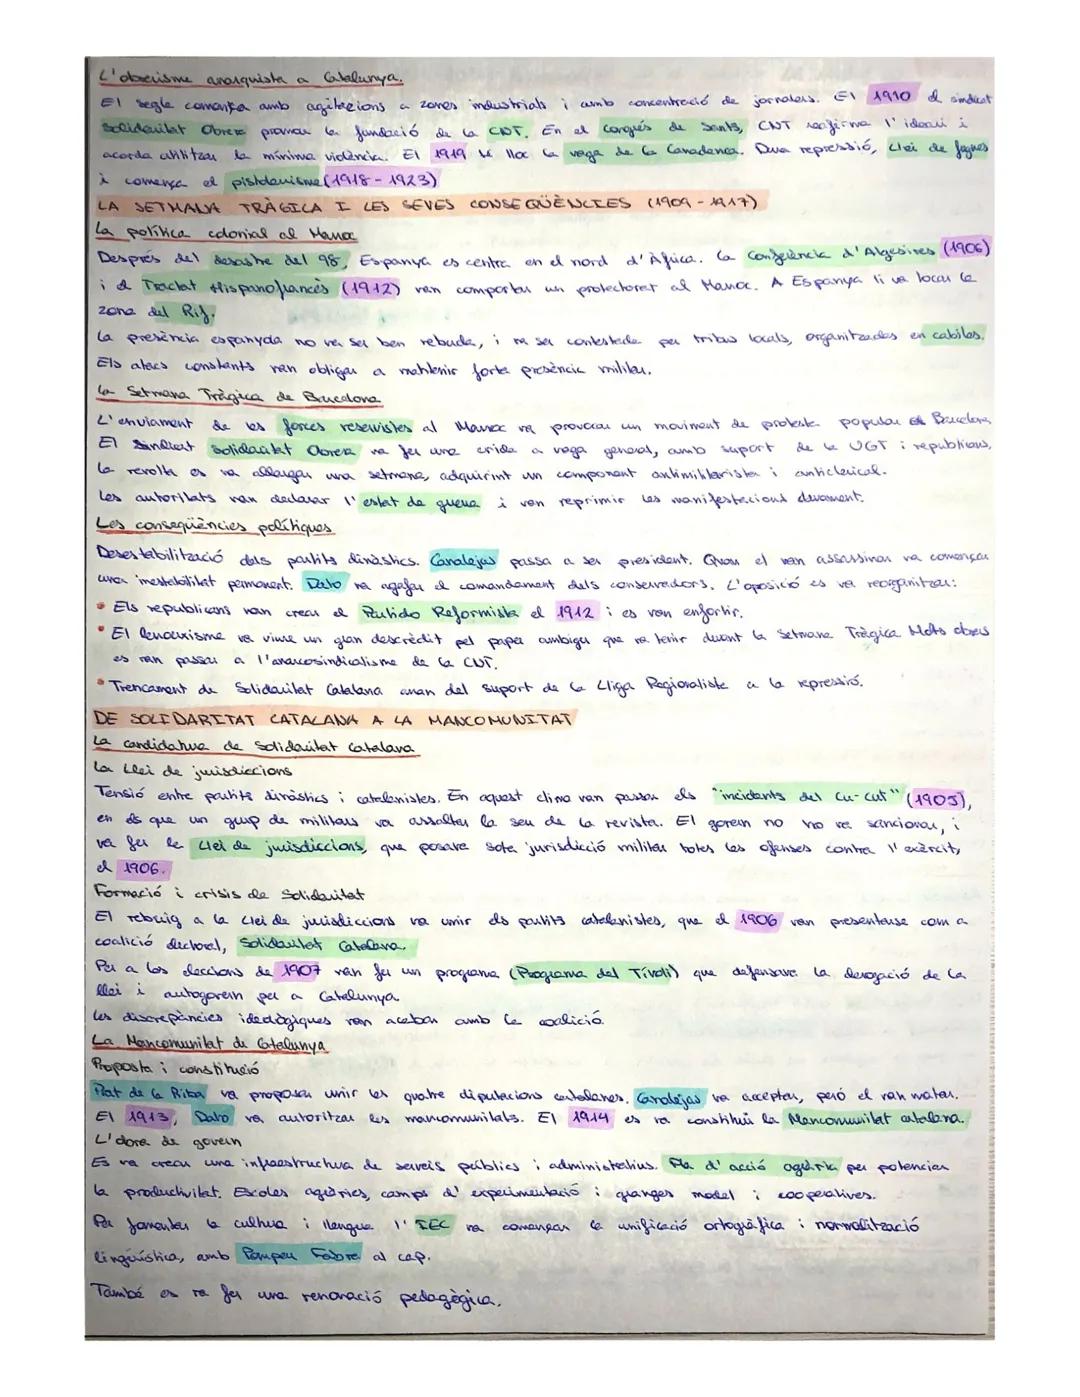 L'obrerisme anarquista a Catalunya.
El segle comença amb agitacions a zones industrials i amb concentració de jornalers. El 1910 el sindicat
Solidaritat Obrera promou la fundació de la CNT. En el congrés de Sants, CNT reafirma l'ideari i
acorda utilitzar la mínima violència. El 1919 té lloc la vaga de la Canadenca. Dura repressió, Llei de fugues
i comença el pistolerisme (1918-1923)
LA SETMANA TRÀGICA I LES SEVES CONSEQÜÈNCIES (1909-1917)
La política colonial al Marroc
Després del desastre del 98, Espanya es centra en el nord d'Àfrica. La Conferència d'Algesires (1906)
i el Tractat Hispanofrancès (1912) van comportar un protectorat al Marroc. A Espanya li va tocar la
zona del Rif.
La presència espanyola no va ser ben rebuda, i va ser contestada per tribus locals, organitzades en cabiles.
Els atacs constants van obligar a mantenir forta presència militar.
La Setmana Tràgica de Barcelona
L'enviament de les forces reservistes al Marroc va provocar un moviment de protesta popular a Barcelona
El Sindicat Solidaritat Obrera va fer una crida a vaga general, amb suport de la UGT i republicans,
la revolta es va allargar una setmana, adquirint un component antimilitarista i anticlerical.
Les autoritats van declarar l'estat de guerra i van reprimir les manifestacions durament.
Les conseqüències polítiques
Desestabilització dels partits dinàstics. Canalejas passa a ser president. Quan el van assassinar va començar
una inestabilitat permanent. Dato va agafar el comandament dels conservadors. L'oposició es va reorganitzar:
• Els republicans van crear el Partido Reformista el 1912 i es van enfortir.
• El lerrouxisme va viure un gran descrèdit pel paper ambigu que va tenir durant la Setmana Tràgica. Molts obrers
es van passar a l'anarcosindicalisme de la CNT.
• Trencament de Solidaritat Catalana arran del suport de la Lliga Regionalista a la repressió.
DE SOLIDARITAT CATALANA A LA MANCOMUNITAT
La candidatura de Solidaritat Catalana
La Llei de jurisdiccions
Tensió entre partits dinàstics i catalanistes. En aquest clima van passar els "incidents del Cu-Cut" (1905),
en els que un grup de militars va assaltar la seu de la revista. El govern no ho va sancionar, i
va fer la Llei de jurisdiccions, que posava sota jurisdicció militar totes les ofenses contra l'exèrcit,
el 1906.
Formació i crisis de Solidaritat
El rebuig a la Llei de jurisdiccions va unir els partits catalanistes, que el 1906 van presentarse com a
coalició electoral, Solidaritat Catalana.
Per a les eleccions de 1907 van fer un programa (Programa del Tívoli) que defensava la derogació de la
llei i autogovern per a Catalunya.
Les discrepàncies ideològiques van acabar amb la coalició.
La Mancomunitat de Catalunya
Proposta i constitució
Prat de la Riba va proposar unir les quatre diputacions catalanes. Canalejas va acceptar, però el van matar.
El 1913, Dato va autoritzar les mancomunitats. El 1914 es va constituir la Mancomunitat catalana.
L'obra de govern
Es va crear una infraestructura de serveis públics i administratius. Pla d'acció agrària per potenciar
la productivitat. Escoles agràries, camps d'experimentació i granges model i cooperatives.
Per fomentar la cultura i llengua l'IEC va començar la unificació ortogràfica i normalització
lingüística, amb Pompeu Fabra al cap.
També es va fer una renovació pedagògica.